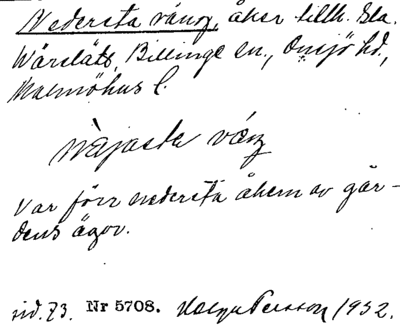 Nedersta vång, åker tillh. Gla.
Wårslåts, Billinge sn., Onsjö hd.,
Malmöhus l.
nèjasta våŋ
Var förr nedersta åkern av går-
dens ägor.
sid. 73. Nr 5708. Helge Persson 1932.